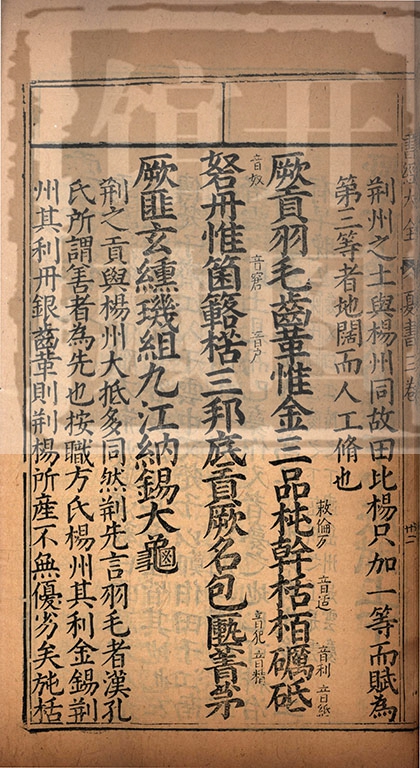 荆州之土與楊州同故田比楊只加一等而賦為
第三等者地闊而人工脩也
厥貢羽毛齒革惟金三品杶幹栝栢礪砥
敕倫切 音适 音利 音紙
砮丹惟箘簵楛三邦底貢厥名包匭菁茅
音奴 音窘 音戶 音軌 音精
厥匪玄纁璣組九江納錫大龜
荆之貢與楊州大抵多同然荆先言羽毛者漢孔
氏所謂善者為先也按職方氏楊州其利金錫荆
州其利丹銀齒革則荆楊所產不無優劣矣施栝